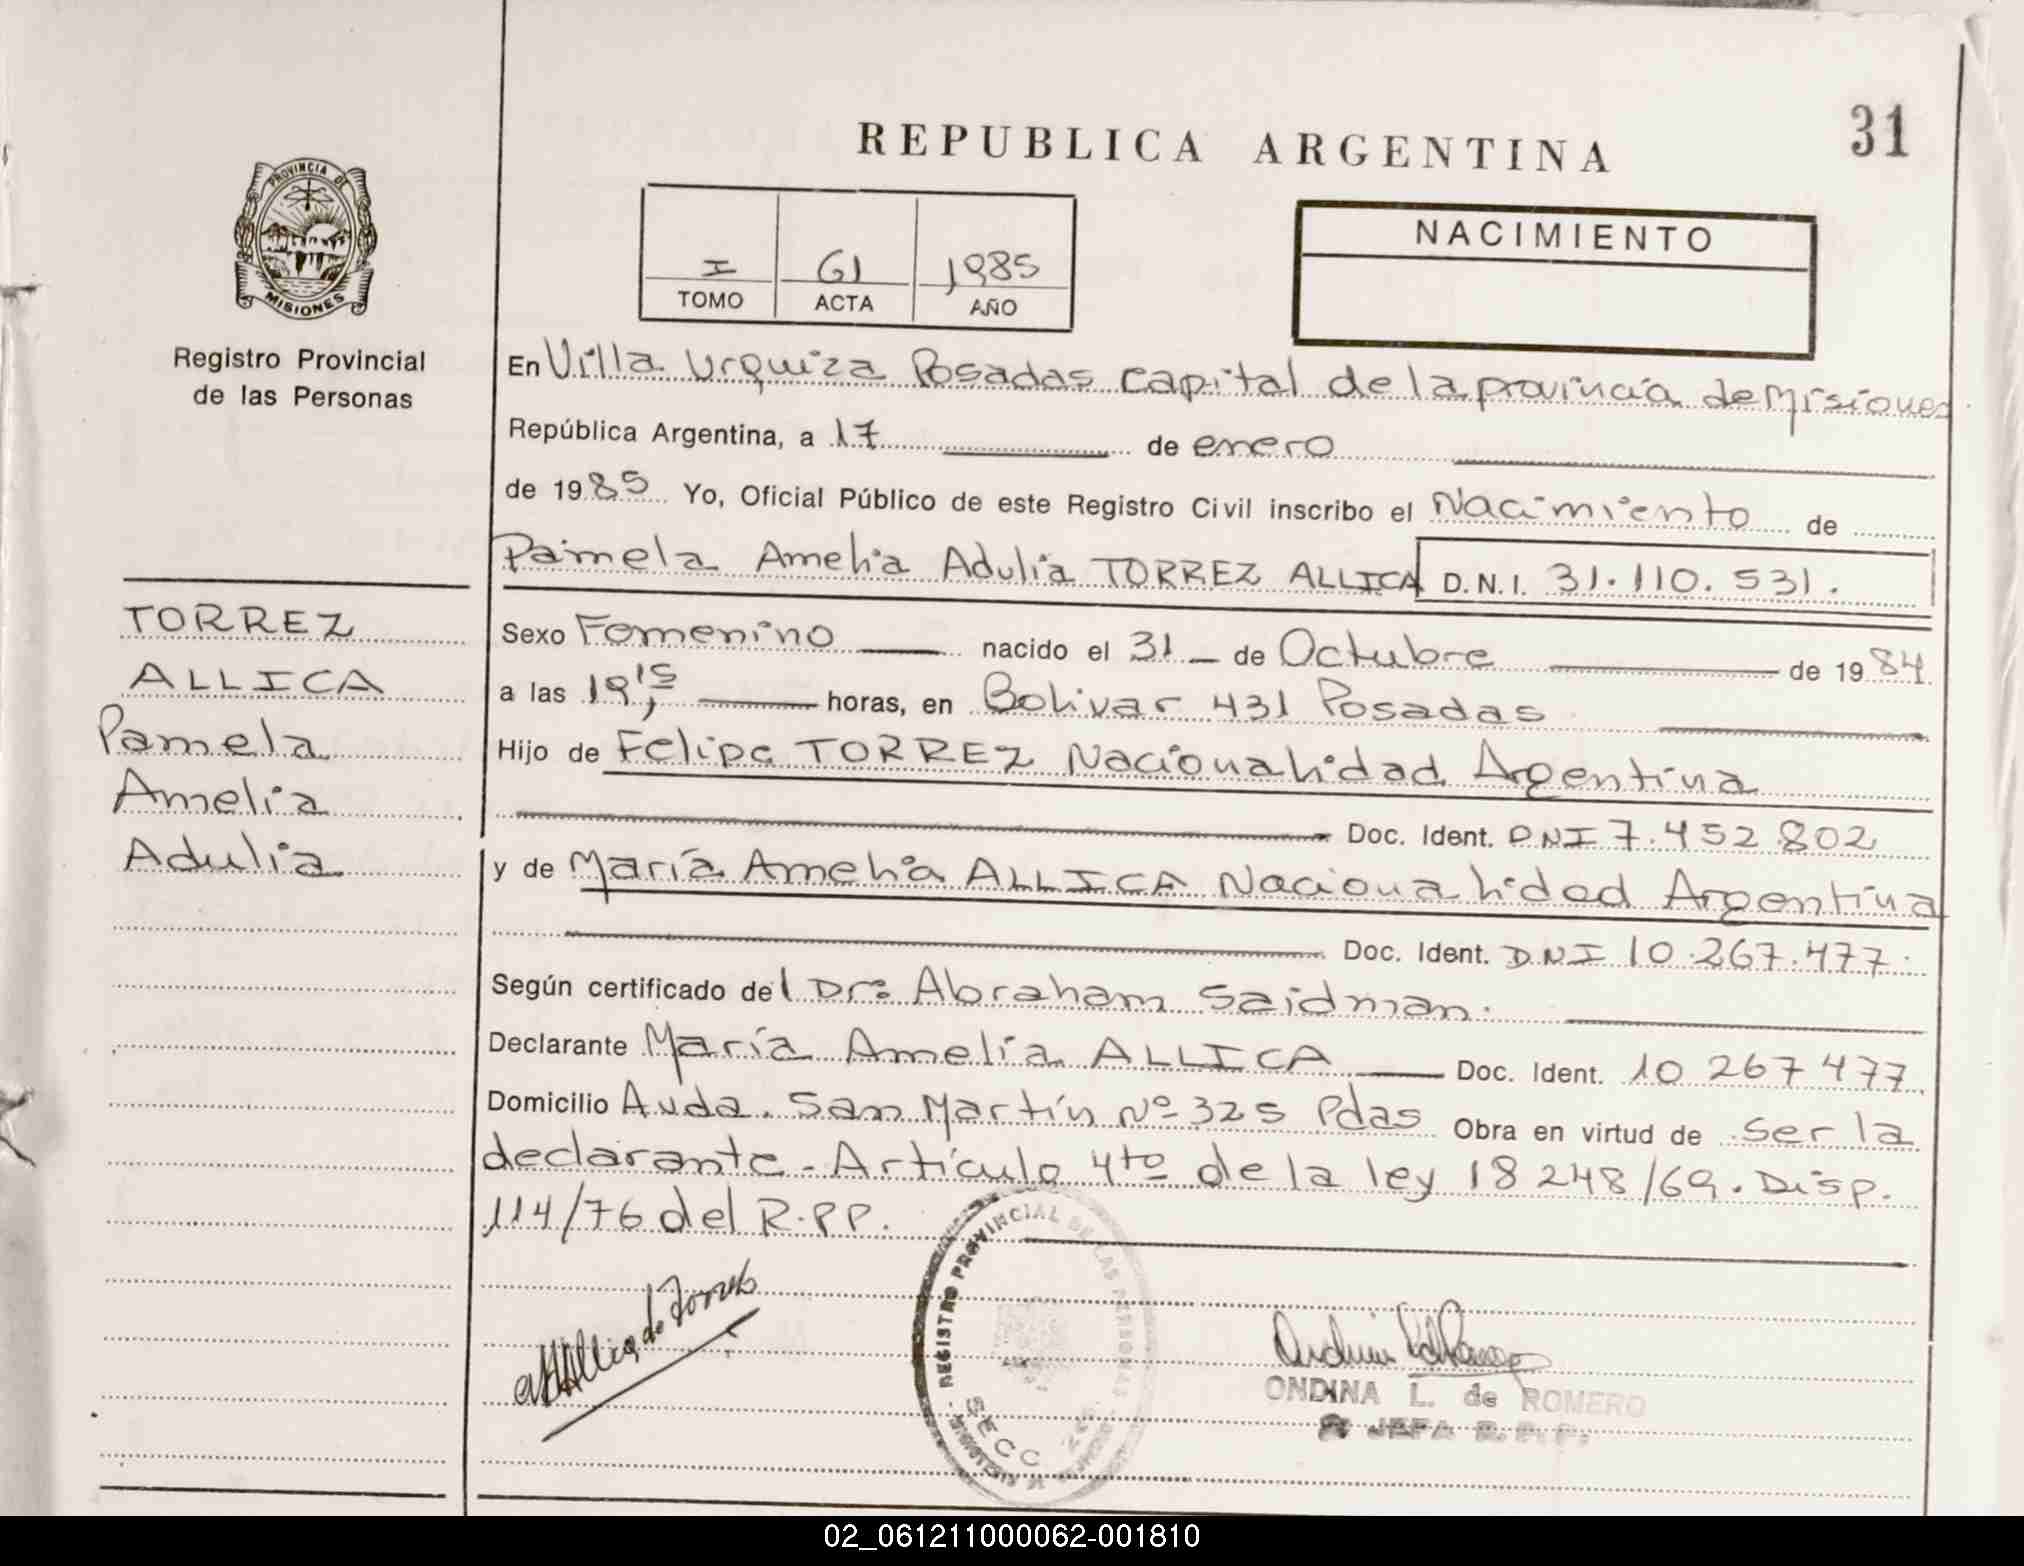 31
REPUBLICA ARGENTINA
PROVINCIA DE
MISIONES
Registro Provincial
de las Personas
I 61 1985
TOMO ACTA AÑO
NACIMIENTO
En Villa Urquiza Posadas capital de la provincia de Misiones
República Argentina, a 17 de enero
de 1985 Yo, Oficial Público de este Registro Civil inscribo el Nacimiento de
Pamela Amelia Adulia TORREZ ALLICA D.N.I. 31.110.531.
TORREZ
ALLICA
Pamela
Amelia
Adulia
Sexo Femenino nacido el 31 de Octubre de 1984
a las 19,15 horas, en Bolivar 431 Posadas
Hijo de Felipe TORREZ Nacionalidad Argentina
Doc. Ident. DNI 7.452.802
y de María Amelia ALLICA Nacionalidad Argentina
Doc. Ident. DNI 10.267.477.
Según certificado del Dr: Abraham Saidman.
Declarante María Amelia ALLICA Doc. Ident. 10 267 477
Domicilio Avda. San Martín Nº 325 Pdas Obra en virtud de ser la
declarante - Artículo 4to de la ley 18 248/69. Disp.
114/76 del R.PP.
Allica de Torrez
REGISTRO PROVINCIAL DE LAS PERSONAS
SECC
ONDINA L. de ROMERO
JEFA R.P.P.
02_061211000062-001810